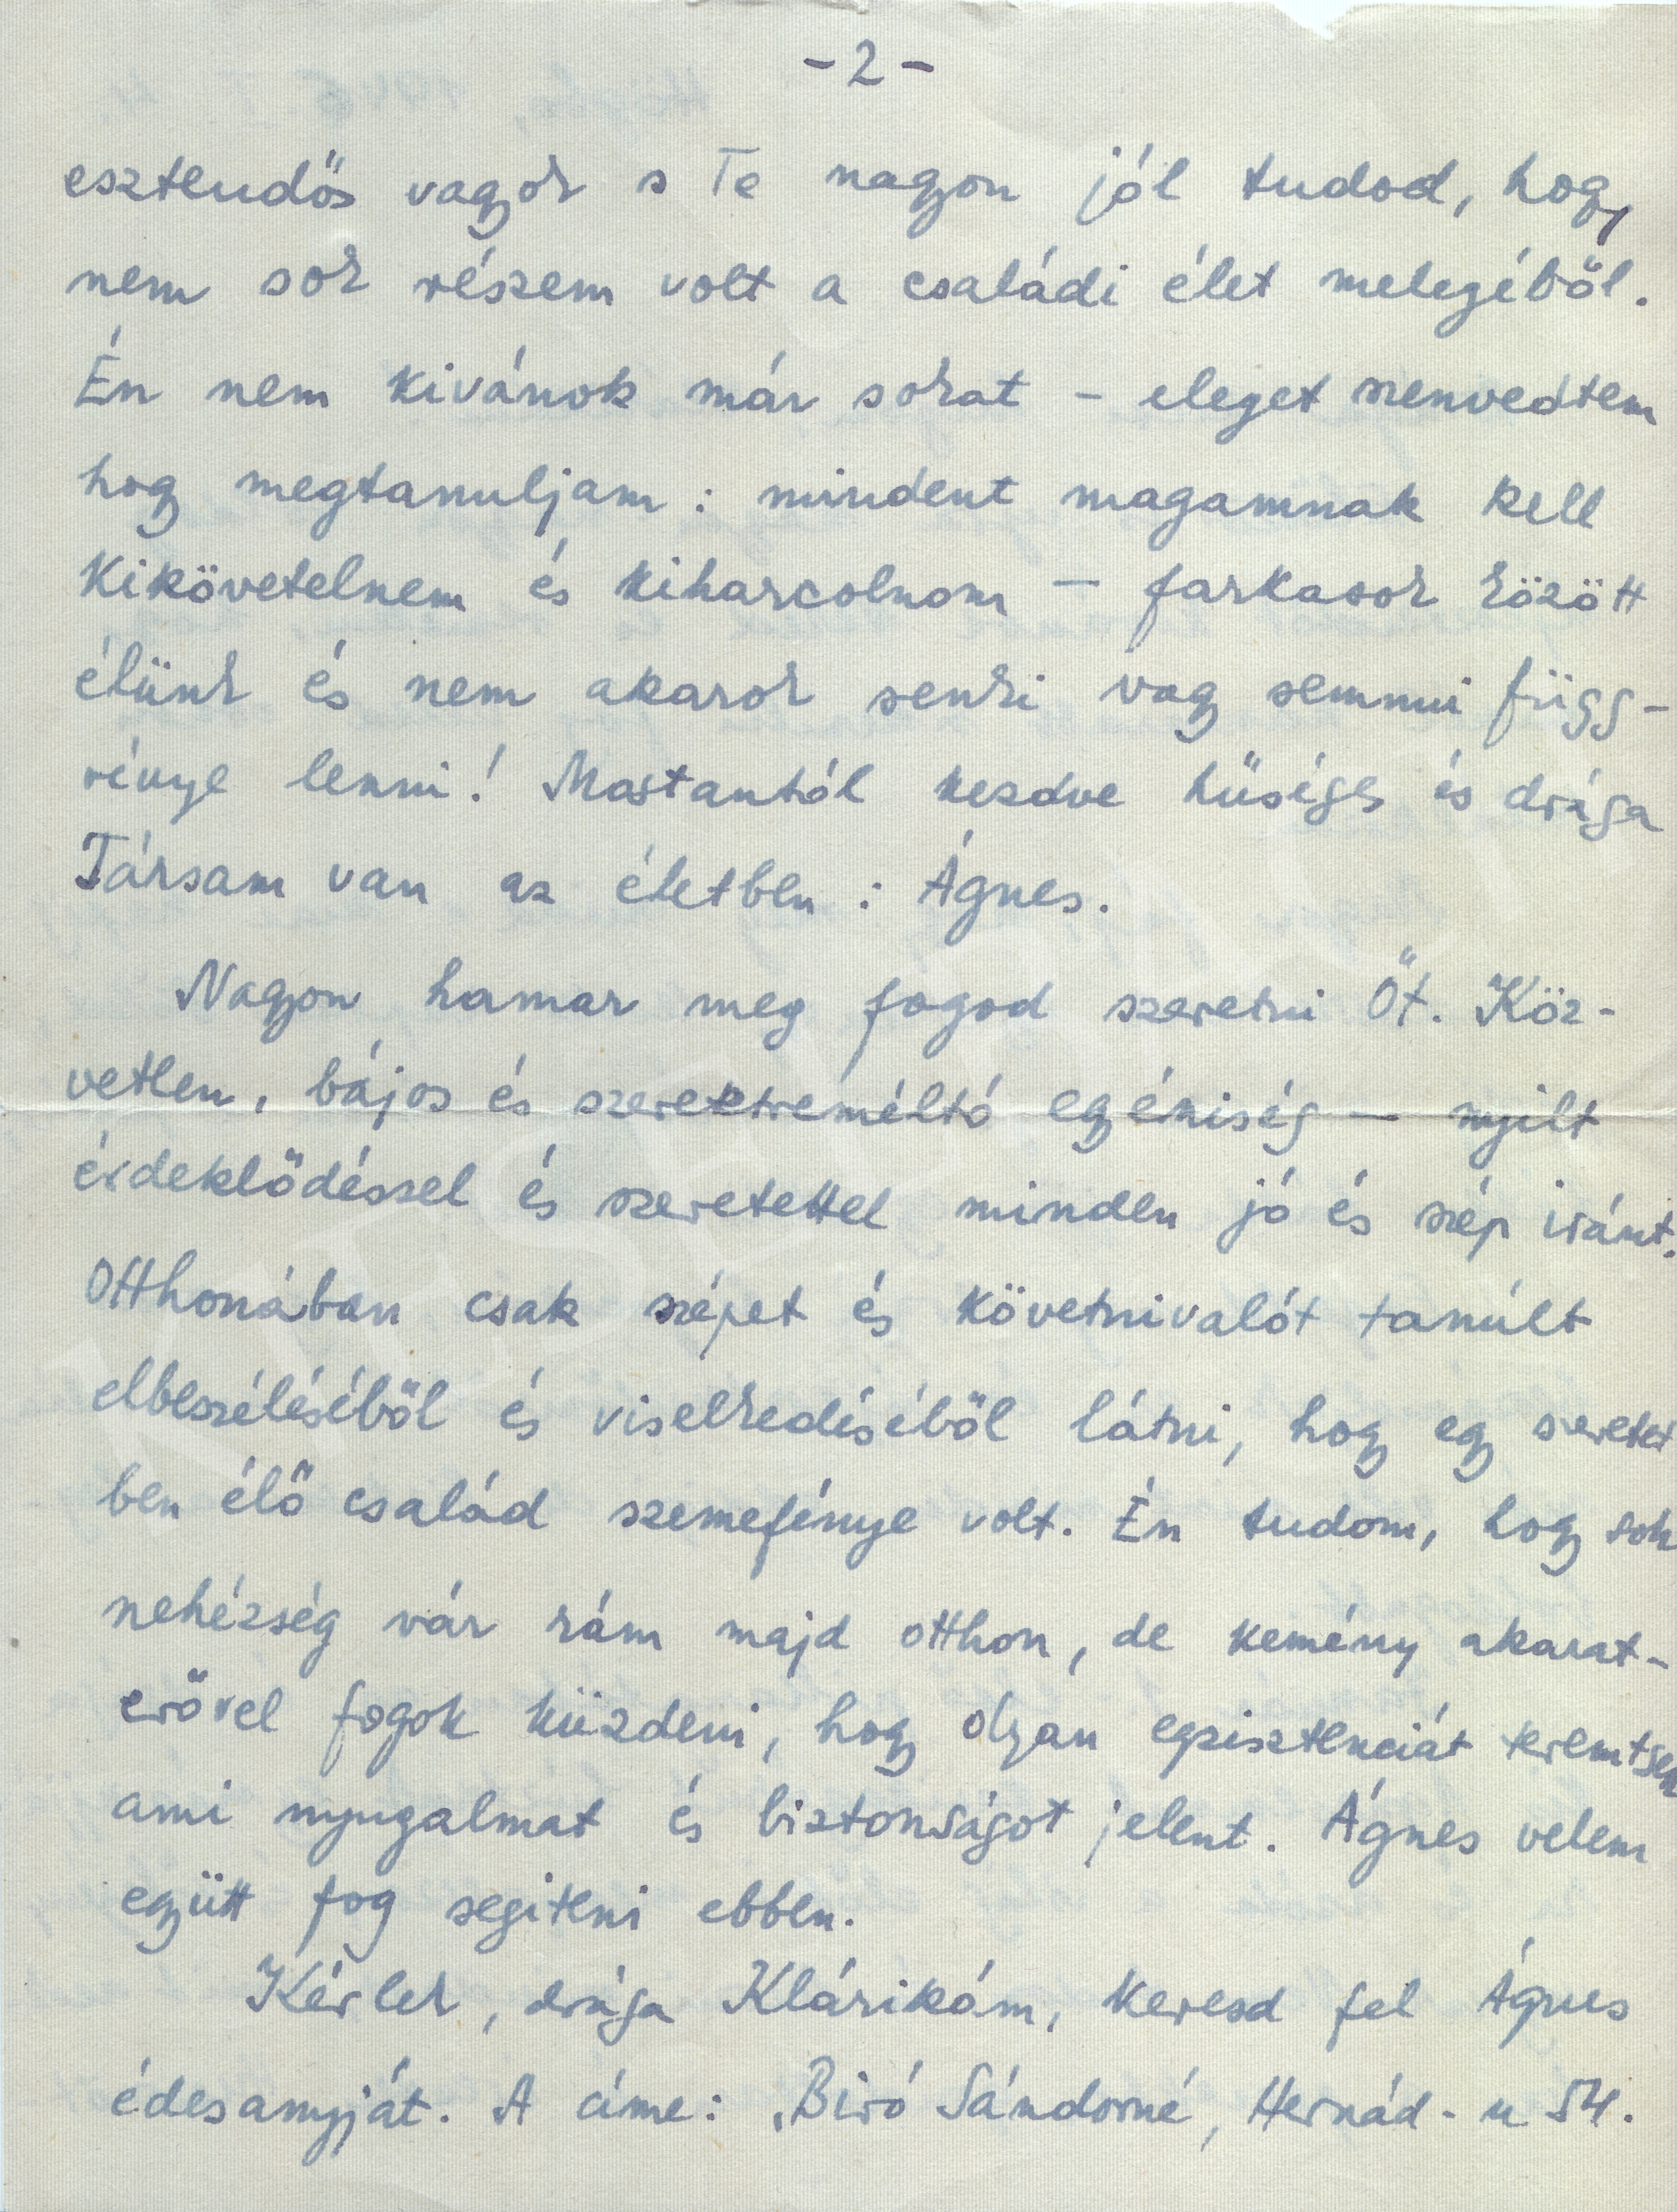 - 2 -
esztendős vagyok s Te nagyon jól tudod, hogy
nem sok részem volt a családi élet melegéből.
Én nem kivánok már sokat - eleget szenvedtem
hogy megtanuljam : mindent magamnak kell
kikövetelnem és kiharcolnom - farkasok között
élünk és nem akarok senki vagy semmi függ-
vénye lenni! Mostantól kezdve hűséges és drága
Társam van az életben : Ágnes.
Nagyon hamar meg fogod szeretni Őt. Köz-
vetlen, bájos és szeretetreméltó egyéniség - nyilt
érdeklődéssel és szeretettel minden jó és szép iránt.
Otthonában csak szépet és követnivalót tanúlt
elbeszéléséből és viselkedéséből látni, hogy egy szeretet
ben élő család szemefénye volt. Én tudom, hogy sok
nehézség vár rám majd otthon, de kemény akarat-
erővel fogok küzdeni, hogy olyan egzisztenciát teremtsek
ami nyugalmat és biztonságot jelent. Ágnes velem
együtt fog segiteni ebben.
Kérlek, drága Klárikám, keresd fel Ágnes
édesanyját. A cime: Biró Sándorné, Hernád-u 54.